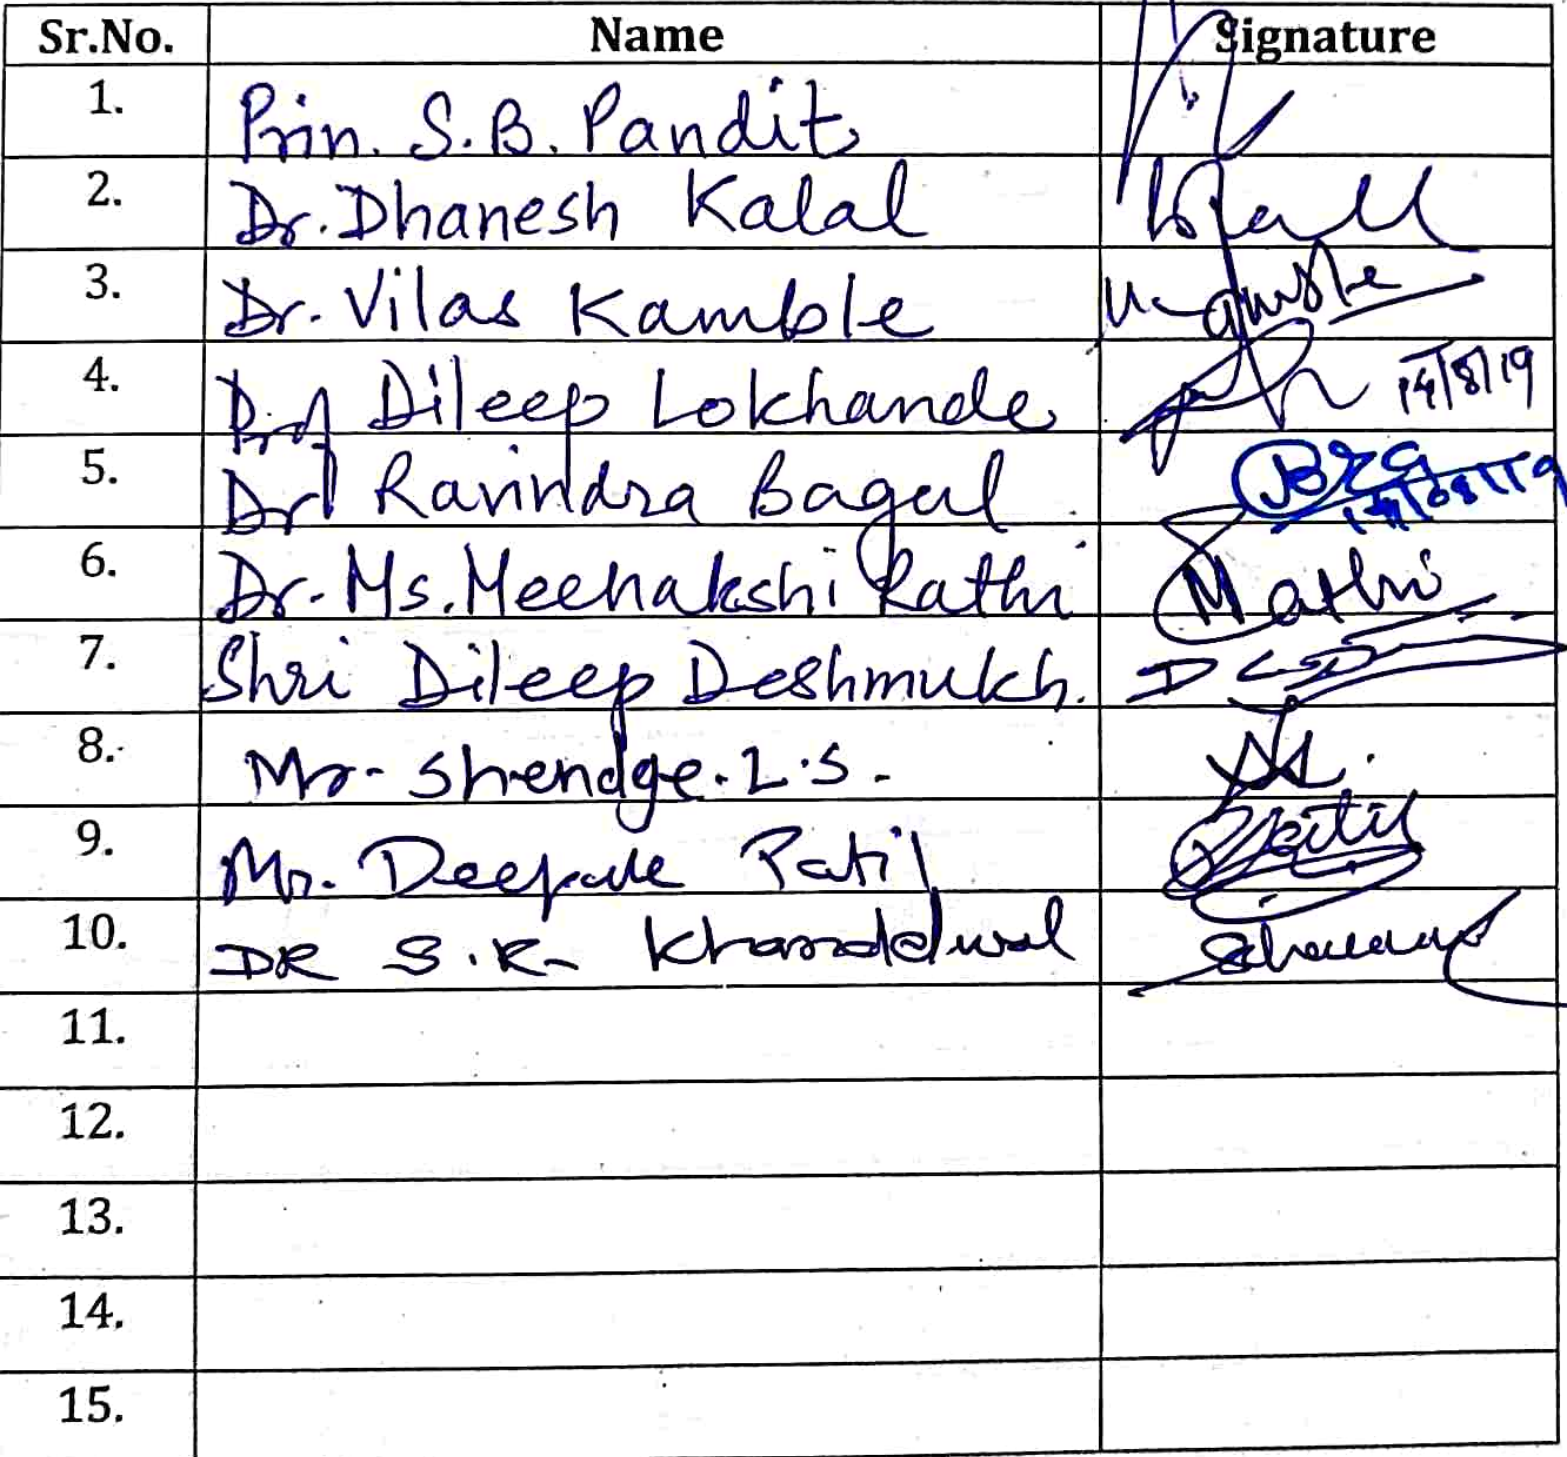 Sr.No. Name Signature
1. Prin. S.B. Pandit
2. Dr. Dhanesh Kalal
3. Dr. Vilas Kamble
4. Prof Dileep Lokhande 14/8/19
5. Dr Ravindra Bagul
6. Dr. Ms. Meenakshi Rathi
7. Shri Dileep Deshmukh.
8. Mr. Shendge. L.S.
9. Mr. Deepak Patil
10. DR S.R. Khandelwal
11.
12.
13.
14.
15.